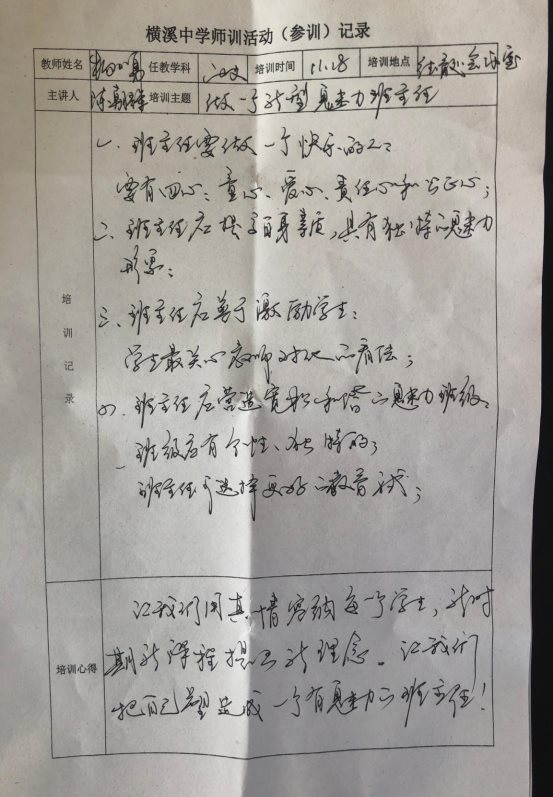 横溪中学师训活动（参训）记录
教师姓名 任教学科 语文 培训时间 11.28 培训地点
主讲人 陈朝 培训主题 做一个新型魅力班主任
培训记录
一、班主任要做一个快乐的人：
要有四心：童心、爱心、责任心和公正心；
二、班主任应提高自身素质，具有独特的魅力
形象；
三、班主任应善于激励学生：
学生最关心教师对他的看法；
四、班主任应营造宽松和谐的魅力班级：
班级应有个性、独特的；
班主任可选择更好的教育方式；
培训心得
让我们用真情容纳每一个学生，新时
期新课程提出新理念。让我们
把自己塑造成一个有魅力的班主任！